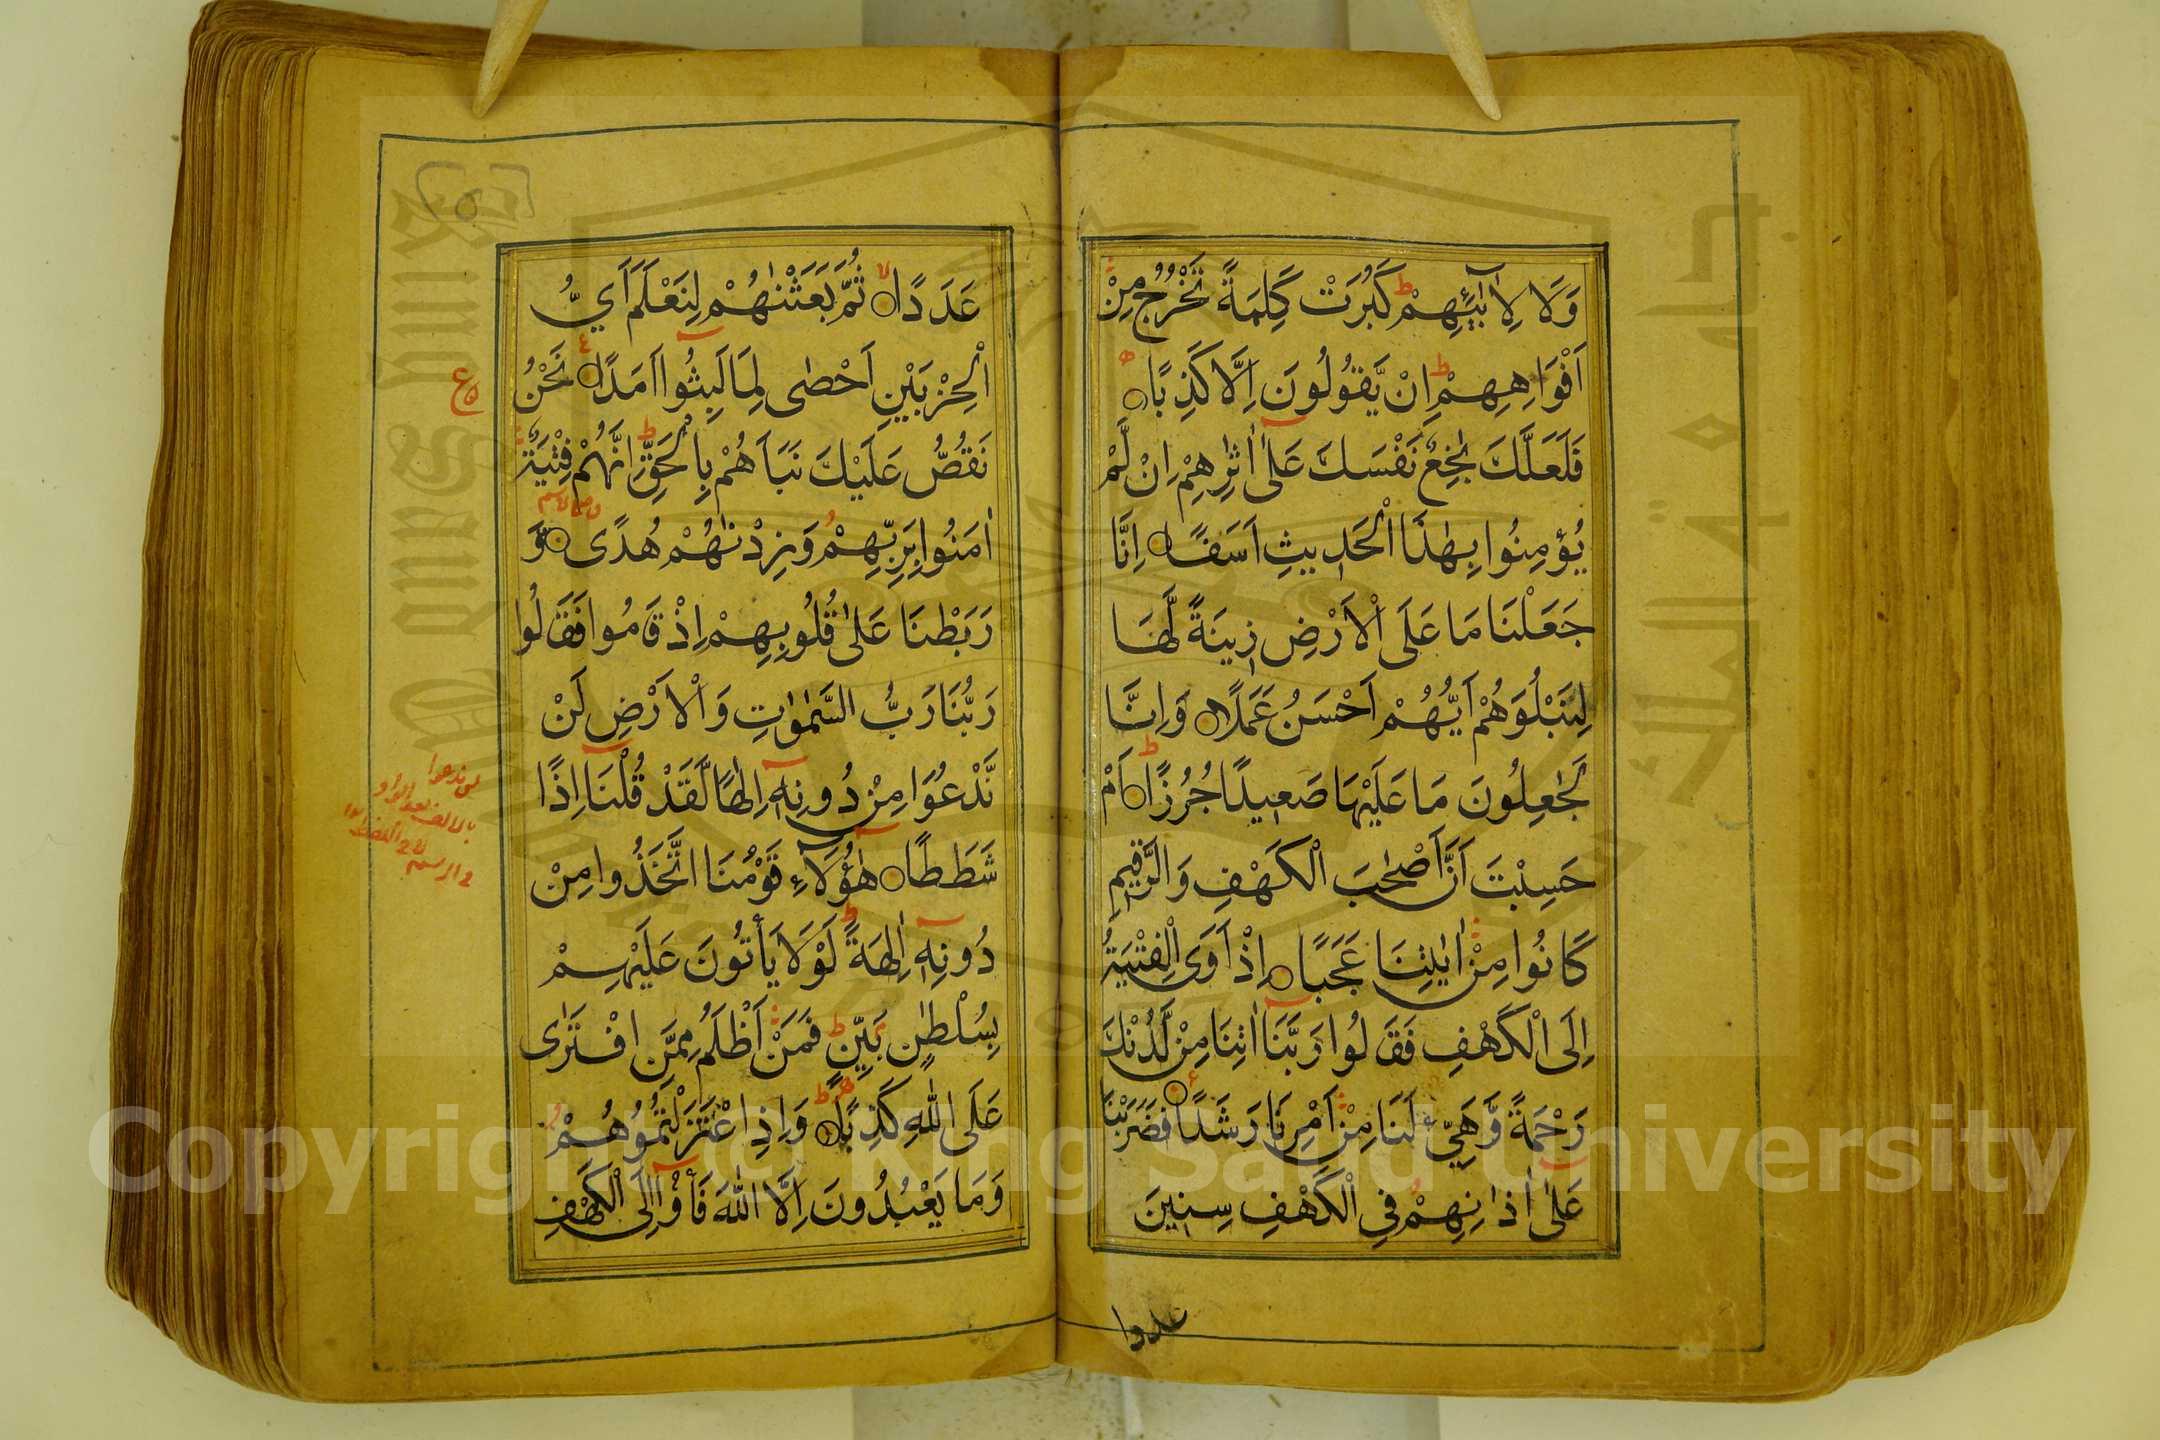 وَلَا لِاٰبَآئِهِمْ كَبُرَتْ كَلِمَةً تَخْرُجُ مِنْ
اَفْوَاهِهِمْ اِنْ يَّقُوْلُونَ اِلَّا كَذِبًا
فَلَعَلَّكَ بٰخِعٌ نَّفْسَكَ عَلٰٓى اٰثٰرِهِمْ اِنْ لَّمْ
يُؤْمِنُوا بِهٰذَا الْحَدِيثِ اَسَفًا اِنَّا
جَعَلْنَا مَا عَلَى الْاَرْضِ زِينَةً لَّهَا
لِنَبْلُوَهُمْ اَيُّهُمْ اَحْسَنُ عَمَلًا وَاِنَّا
لَجٰعِلُونَ مَا عَلَيْهَا صَعِيدًا جُرُزًا اَمْ
حَسِبْتَ اَنَّ اَصْحٰبَ الْكَهْفِ وَالرَّقِيمِ
كَانُوا مِنْ اٰيٰتِنَا عَجَبًا اِذْ اَوَى الْفِتْيَةُ
اِلَى الْكَهْفِ فَقَالُوا رَبَّنَآ اٰتِنَا مِنْ لَّدُنْكَ
رَحْمَةً وَّهَيِّئْ لَنَا مِنْ اَمْرِنَا رَشَدًا فَضَرَبْنَا
عَلٰٓى اٰذَانِهِمْ فِي الْكَهْفِ سِنِينَ
عددا
عَدَدًا ثُمَّ بَعَثْنٰهُمْ لِنَعْلَمَ اَيُّ
الْحِزْبَيْنِ اَحْصٰى لِمَا لَبِثُوٓا اَمَدًا نَحْنُ
نَقُصُّ عَلَيْكَ نَبَاَهُمْ بِالْحَقِّ اِنَّهُمْ فِتْيَةٌ
اٰمَنُوا بِرَبِّهِمْ وَزِدْنٰهُمْ هُدًى وَّ
رَبَطْنَا عَلٰى قُلُوبِهِمْ اِذْ قَامُوا فَقَالُوا
رَبُّنَا رَبُّ السَّمٰوٰتِ وَالْاَرْضِ لَنْ
نَّدْعُوَا مِنْ دُونِهٖٓ اِلٰهًا لَّقَدْ قُلْنَآ اِذًا
شَطَطًا هٰٓؤُلَآءِ قَوْمُنَا اتَّخَذُوا مِنْ
دُونِهٖٓ اٰلِهَةً لَوْلَا يَأْتُونَ عَلَيْهِمْ
بِسُلْطٰنٍ بَيِّنٍ فَمَنْ اَظْلَمُ مِمَّنِ افْتَرٰى
عَلَى اللّٰهِ كَذِبًا وَاِذِ اعْتَزَلْتُمُوهُمْ
وَمَا يَعْبُدُونَ اِلَّا اللّٰهَ فَأْوٓا اِلَى الْكَهْفِ
ع
لن ندعوا
بالالف بعد الواو
Copyright © King Saud University